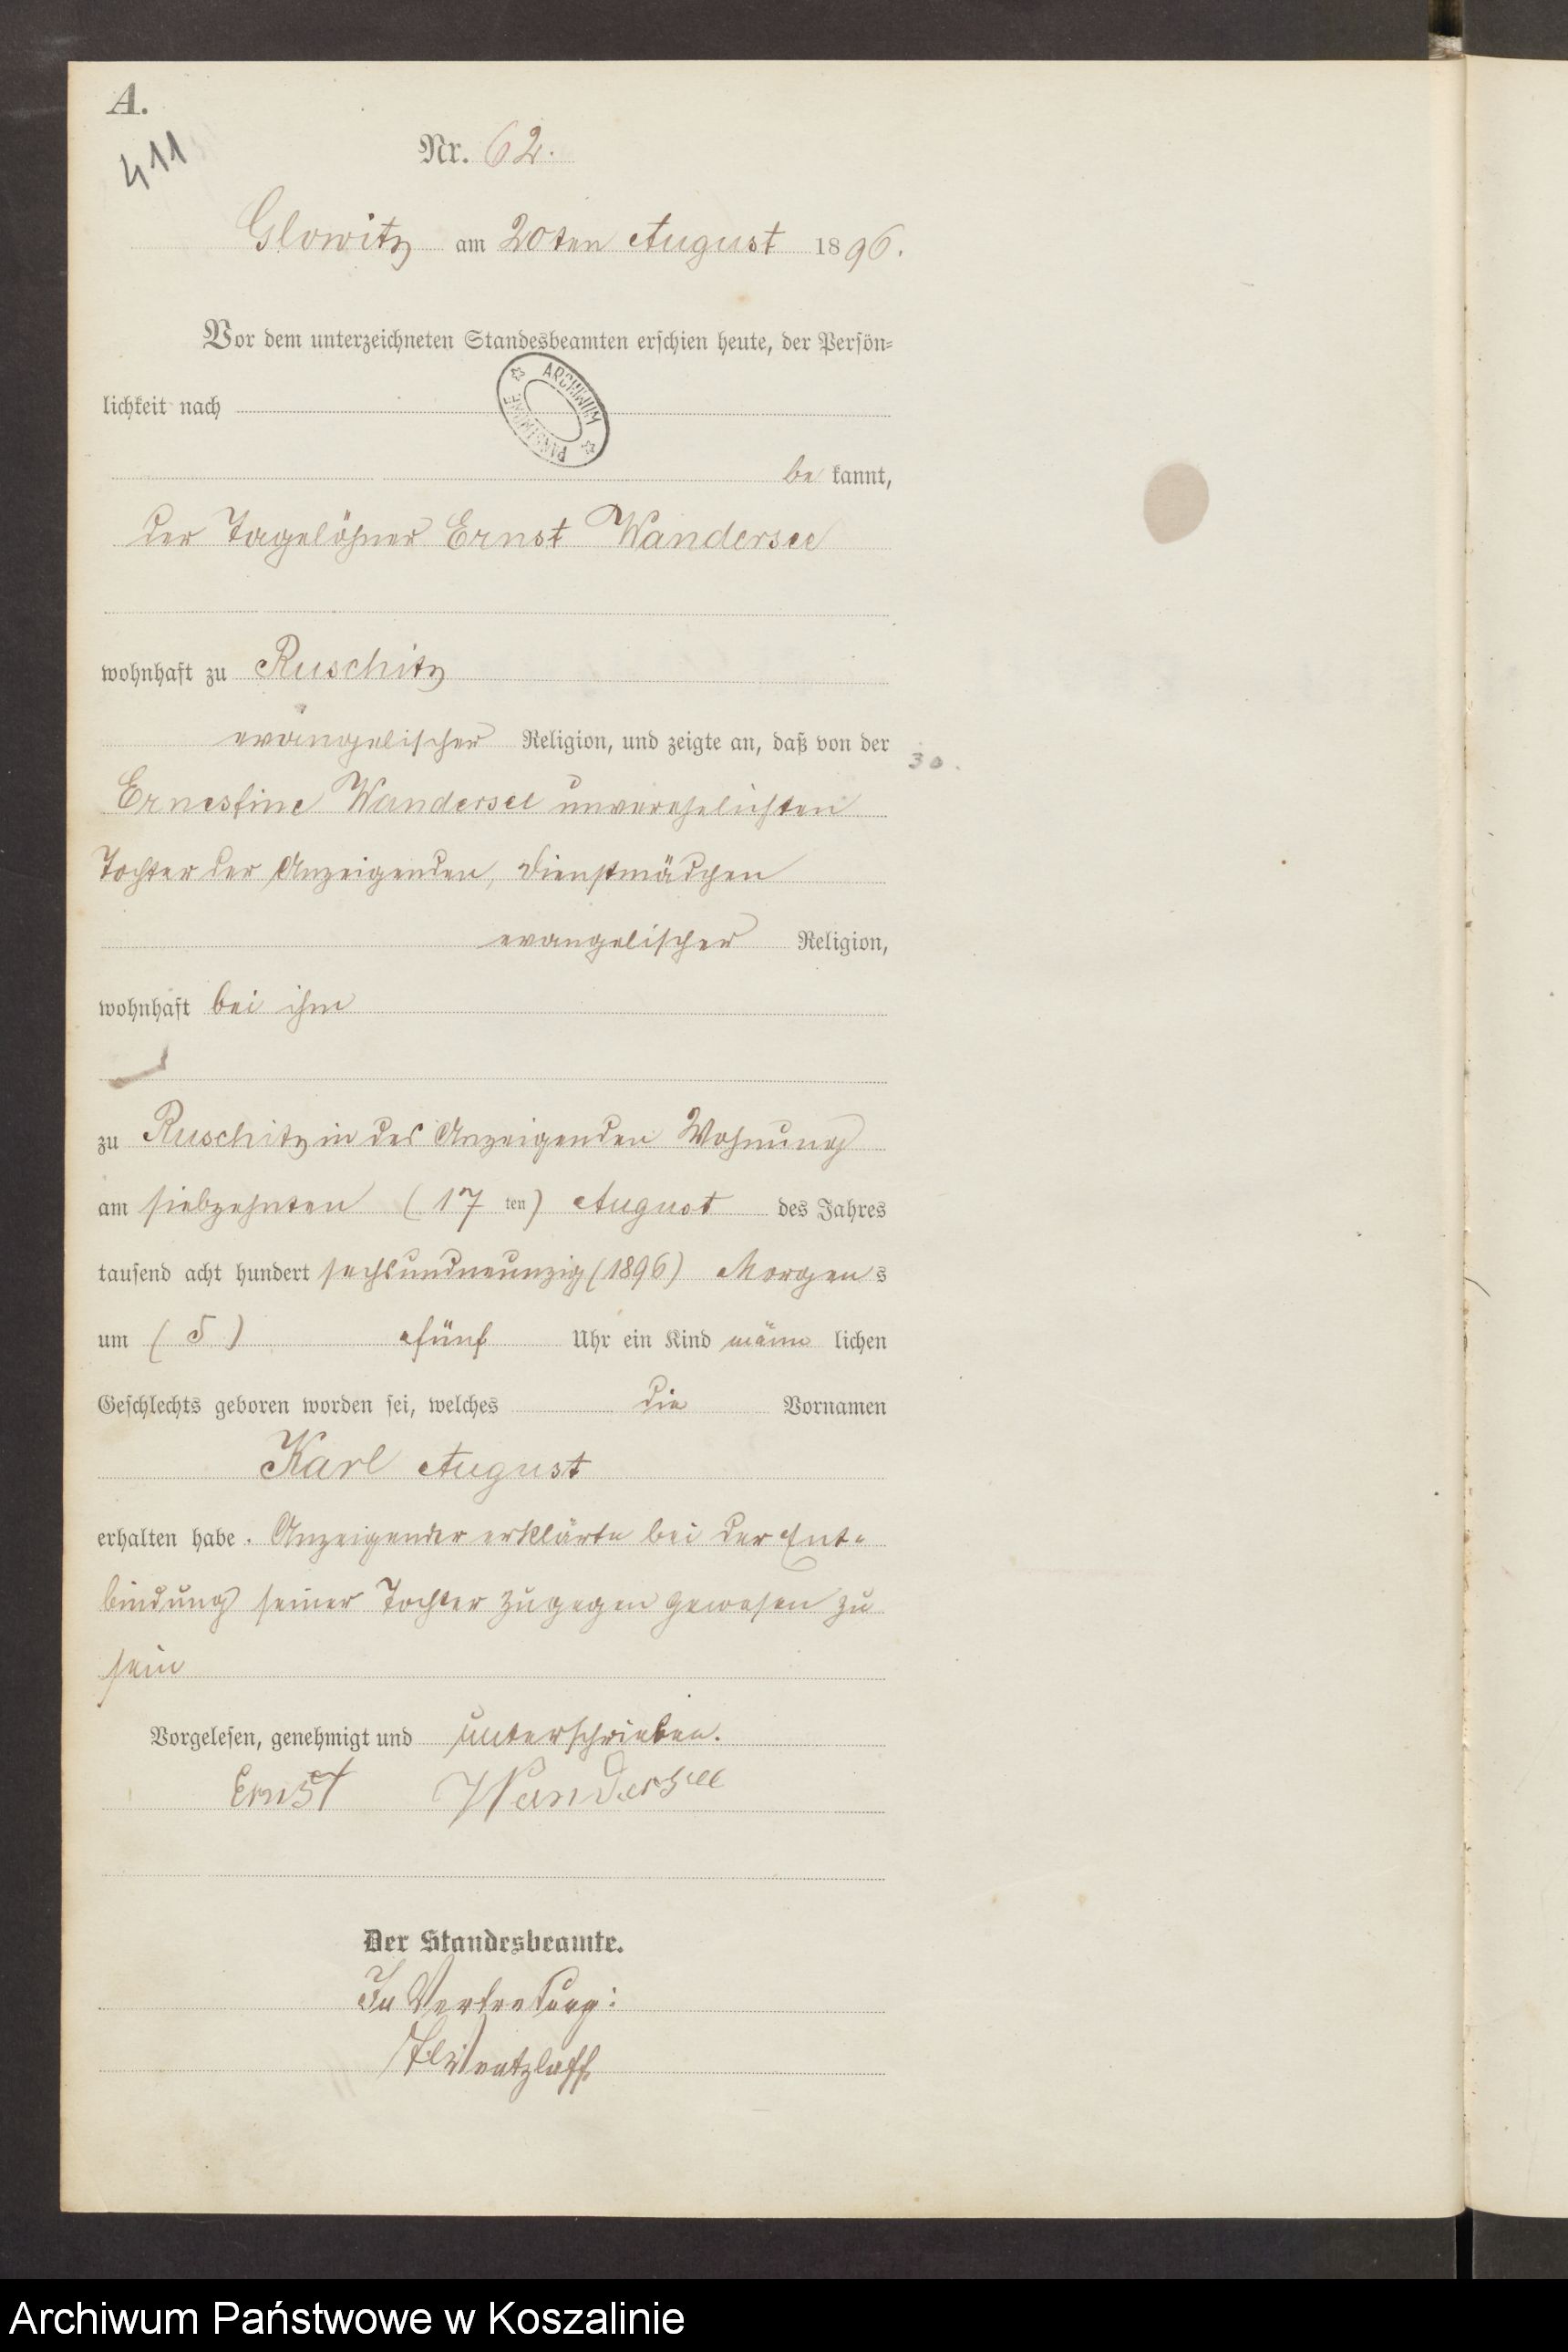 A.
411
Nr. 62.
Glowitz am 20ten August 1896.
Vor dem unterzeichneten Standesbeamten erschien heute, der Persön-
lichkeit nach
ARCHIWUM PAŃSTWOWE
be kannt,
der Tagelöhner Ernst Wandersee
wohnhaft zu Ruschitz
evangelischer Religion, und zeigte an, daß von der
30.
Ernestine Wandersee unverehelichten
Tochter des Anzeigenden, Dienstmädchen
evangelischer Religion,
wohnhaft bei ihm
zu Ruschitz in des Anzeigenden Wohnung
am siebzehnten (17 ten) August des Jahres
tausend acht hundert sechsundneunzig (1896) Morgens
um (5) fünf Uhr ein Kind männ lichen
Geschlechts geboren worden sei, welches die Vornamen
Karl August
erhalten habe. Anzeigender erklärte bei der Ent-
bindung seiner Tochter zugegen gewesen zu
sein
Vorgelesen, genehmigt und unterschrieben.
Ernst Wandersee
Der Standesbeamte.
In Vertretung:
Wentzlaff
Archiwum Państwowe w Koszalinie